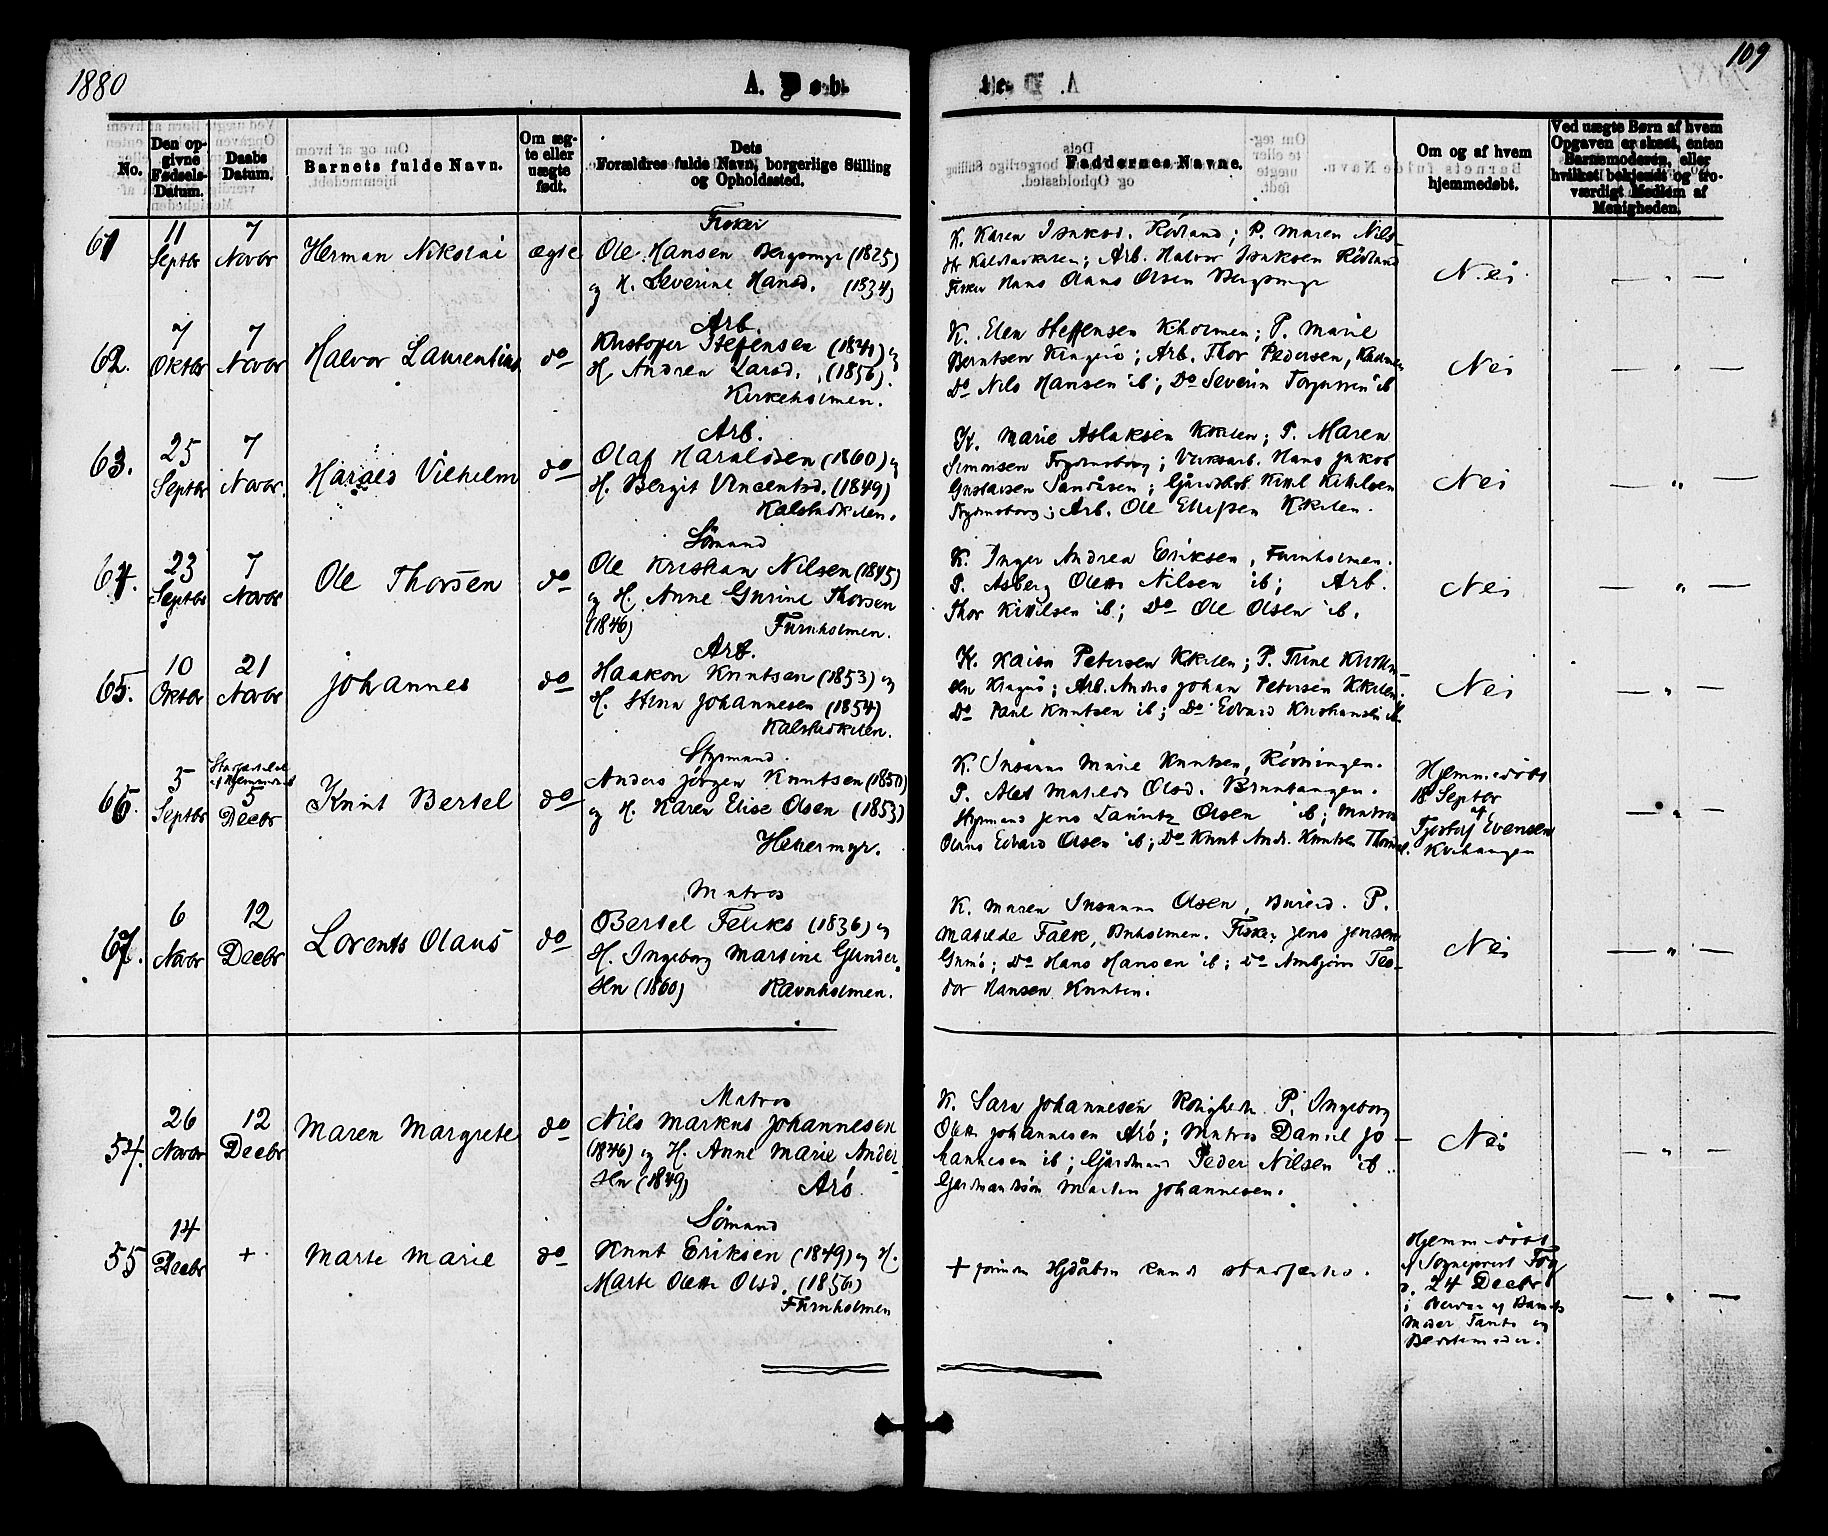 1880
A. Døb.
109
No.
Den op-
givne
Fødsels-
Datum.
Daabs
Datum.
Barnets fulde Navn.
Om æg-
te eller
uægte
født.
Dets
Forældres fulde Navn, borgerlige Stilling
og Opholdssted.
Faddernes Navne.
Om og af hvem
hjemmedøbt.
Ved uægte Børn af hvem
Opgaven er skeet, enten
Barnemoderen, eller
hvilket bekjendt og tro-
værdigt Medlem af
Menigheden.
61
11
Septbr
7
Novbr
Herman Nikolai
ægte
Fisker
Ole Hansen Bergsmyr (1825)
og H. Severine Hansd. (1834)
K. Karen Isaksd. Rødland; P. Maren Nils-
Kalstadkilen; Arb. Halvor Isaksen Rødland
Fisker Hans Olaus Olsen Bergsmyr
Nei
62.
7
Oktbr
7
Novbr
Halvor Laurentius
do
Arb.
Kristofer Stefensen (1841) og
H. Andrea Larsd. (1856).
Kirkeholmen.
K. Elen Steffensen Kholmen; P. Marie
Berntsen Kragerö; Arb. Thor Pedersen, Kholmen
Do Nils Hansen ib; Do Severin Torgersen ib
Nei
63.
25
Septbr
7
Novbr.
Harald Vilhelm
do
Arb.
Olaf Haraldsen (1860) og
H. Bergit Vincentsd. (1849)
Kalstadkilen.
K. Marie Aslaksen Kkilen; P. Maren
Simonsen Frydensborg; Verksarb. Hans Jakob
Gustavsen Sandåsen; Kittil Kittilsen
Frydensborg; Arb. Ole Ellefsen Kkilen.
Nei
64.
23
Septbr
7
Novbr
Ole Thorsen
do
Sömand
Ole Kristian Nilsen (1845)
og H. Anne Gurine Thorsen
(1846) Furuholmen.
K. Inger Andrea Eriksen, Furuholmen.
P. Asberg Olette Nilsen ib; Arb.
Thor Kittilsen ib; Do Ole Olsen ib.
Nei
65.
10
Oktbr
21
Novbr
Johannes
do
Arb.
Haakon Knutsen (1853) og
H. Stina Johannesen (1854)
Kalstadkilen.
K. Kaisa Petersen Kkilen; P. Trine Kristian-
sen Kragerö; Arb. Anders Johan Petersen Kkilen.
Do Paul Knutsen ib; Do Edvard Kristiansen ib
Nei
66.
5
Septbr
Stadfæstelse
af Hjemmedaab
5
Decbr
Knut Bertel
do
Styrmand.
Anders Jörgen Knutsen (1850)
og H. Karen Elise Olsen (1853)
Heiermyr.
K. Susanne Marie Knutsen, Rövningen.
P. Alet Matilde Olsd. Bräntangen.
Styrmand Jens Lauritz Olsen ib; Matros
Olaus Edvard Olsen ib; Do Knut Andr. Knutsen
Hjemmedöbt
18 Septbr
af
Tjöstaf Evensen
67.
6
Novbr
12
Decbr
Lorents Olaus
do
Matros
Bertel Feliks (1836) og
H. Ingeborg Martine Gunder-
sen (1860) Ravnholmen.
K. Maren Susanne Olsen, P.
Matilde Falk, Fisker Jens Jensen
Gumö; Do Hans Hansen ib; Do Teo-
dor Hansen Knutsen.
Nei
54.
26
Novbr
12
Decbr
Maren Margrete
do
Matros
Nils Markus Johannesen
(1846) og H. Anne Marie Ander-
sen (1849) Arö
K. Sara Johannesen P. Ingeborg
Olette Johannesen Arö; Matros Daniel Jo-
hannesen ib; Gårdmand Peder Nilsen ib.
Gårdmandssön Martin Johannesen.
Nei
55
14
Decbr
+
Marte Marie
do
Sömand
Knut Eriksen (1849) og H.
Marte Olette Olsd. (1856)
Furuholmen
+ förinden Hjdåben kunde stadfæstes.
Hjemmedöbt
af Sogneprest
d. 24 Decbr
i Nærvær af Barnets
Moder Tante og
Bedstemoder.